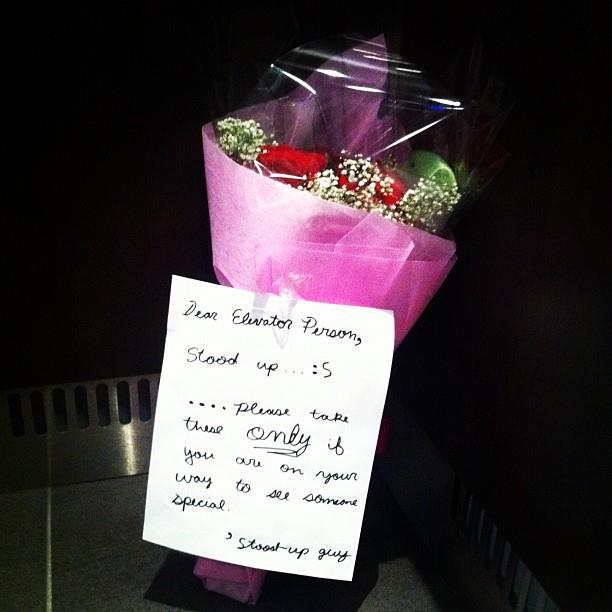 Dear Elevator Person,
Stood up...:S
.... please take
these only if
you are on your
way to see someone
special.
, Stood-up guy